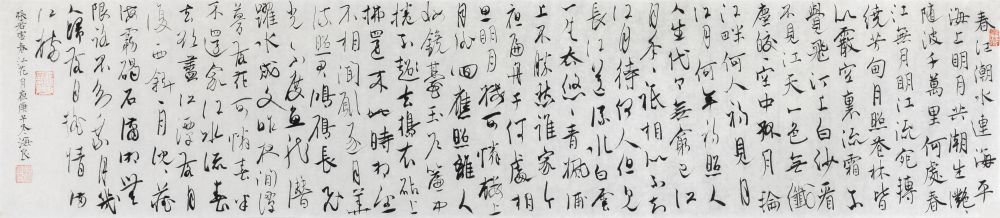 春江潮水連海平
海上明月共潮生灩灩
隨波千萬里何處春
江無月明江流宛轉
繞芳甸月照花林皆
似霰空裏流霜不
覺飛汀上白沙看
不見江天一色無纖
塵皎皎空中孤月輪
江畔何人初見月
江月何年初照人
人生代代無窮已江
月年年祗相似不知
江月待何人但見
長江送流水白雲
一片去悠悠青楓浦
上不勝愁誰家今
夜扁舟子何處相
思明月樓可憐樓上
月徘徊應照離人
妝鏡臺玉戶簾中
捲不去擣衣砧上
拂還來此時相望
不相聞願逐月華
流照君鴻雁長飛
光不度魚龍潛
躍水成文昨夜閒潭
夢落花可憐春半
不還家江水流春
去欲盡江潭落月
復西斜斜月沉沉藏
海霧碣石瀟湘無
限路不知乘月幾
人歸落月搖情滿
江樹
張若虛春江花月夜庚子冬海